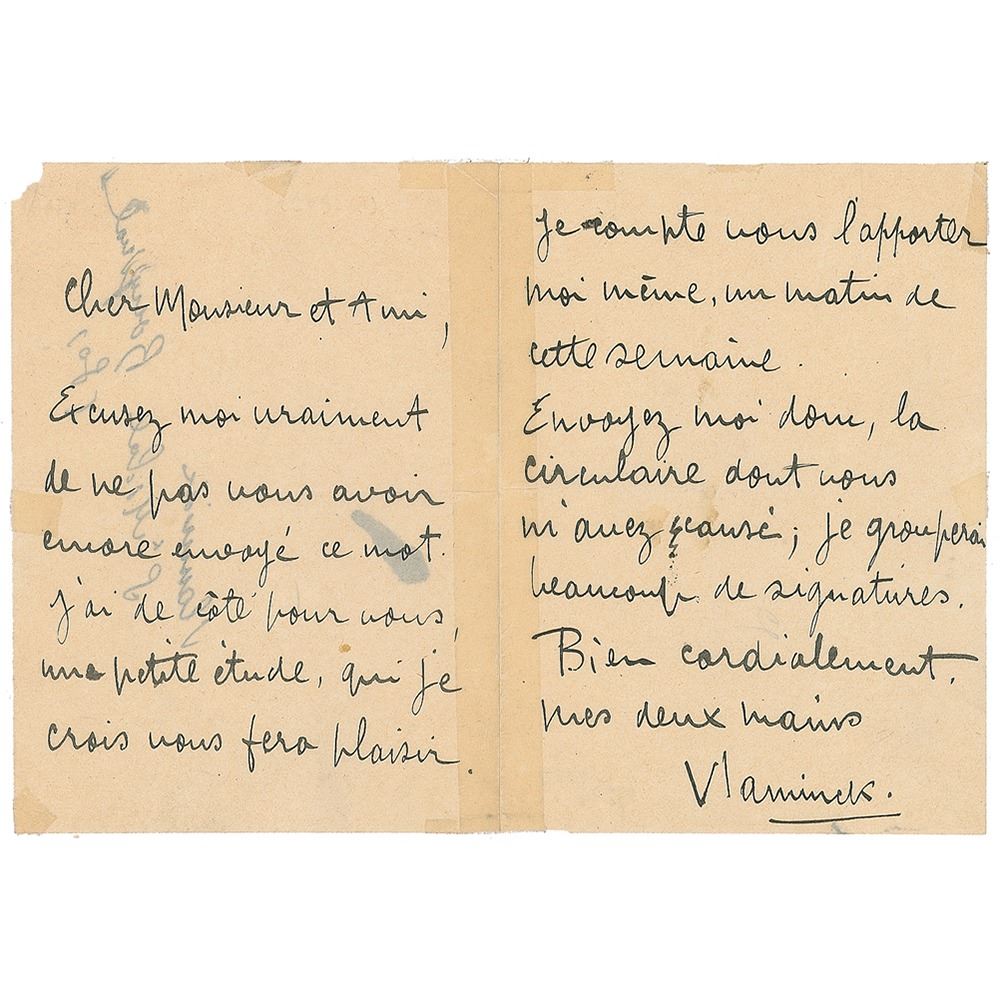 Cher Monsieur et Ami,
Excusez moi vraiment
de ne pas vous avoir
encore envoyé ce mot.
J'ai de côté pour vous,
une petite étude, qui je
crois vous fera plaisir.
Je compte vous l'apporter
moi même, un matin de
cette semaine.
Envoyez moi donc, la
circulaire dont vous
m'avez causé; je grouperai
beaucoup de signatures.
Bien cordialement.
mes deux mains
Vlaminck.